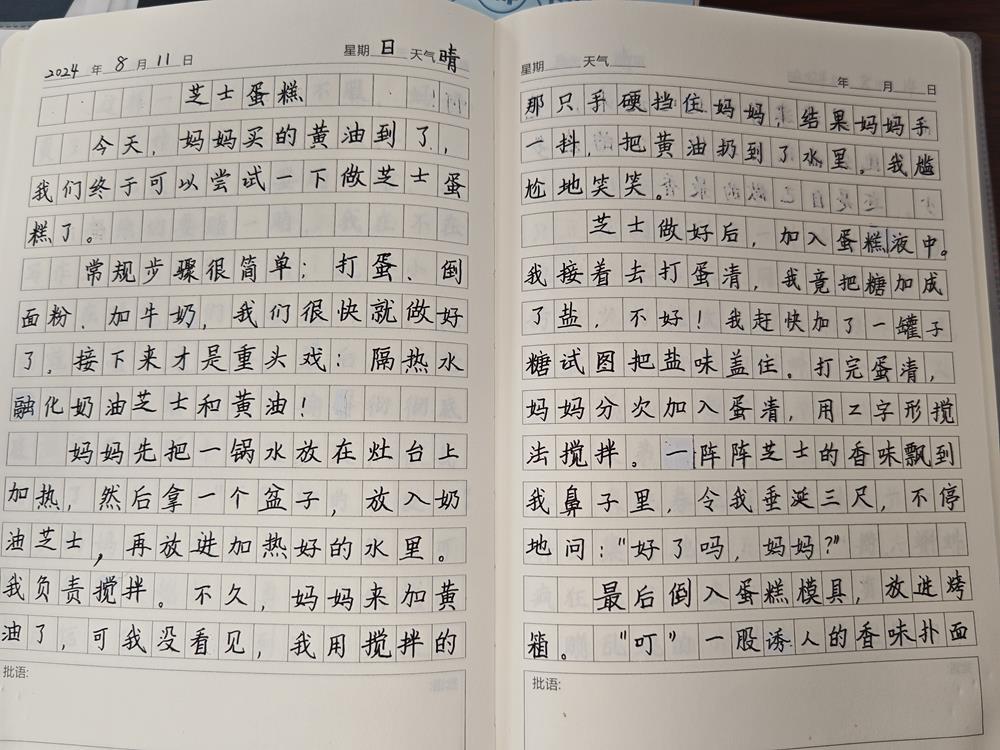 2024 年 8 月 11 日 星期 日 天气 晴
芝士蛋糕
今天，妈妈买的黄油到了，
我们终于可以尝试一下做芝士蛋
糕了。
常规步骤很简单：打蛋、倒
面粉、加牛奶，我们很快就做好
了，接下来才是重头戏：隔热水
融化奶油芝士和黄油！
妈妈先把一锅水放在灶台上
加热，然后拿一个盆子，放入奶
油芝士，再放进加热好的水里。
我负责搅拌。不久，妈妈来加黄
油了，可我没看见，我用搅拌的
批语:
星期 天气 年 月 日
那只手硬挡住妈妈，结果妈妈手
一抖，把黄油扔到了水里。我尴
尬地笑笑。
芝士做好后，加入蛋糕液中。
我接着去打蛋清，我竟把糖加成
了盐，不好！我赶快加了一罐子
糖试图把盐味盖住。打完蛋清，
妈妈分次加入蛋清，用Z字形搅
法搅拌。一阵阵芝士的香味飘到
我鼻子里，令我垂涎三尺，不停
地问："好了吗，妈妈?"
最后倒入蛋糕模具，放进烤
箱。"叮"一股诱人的香味扑面
批语: